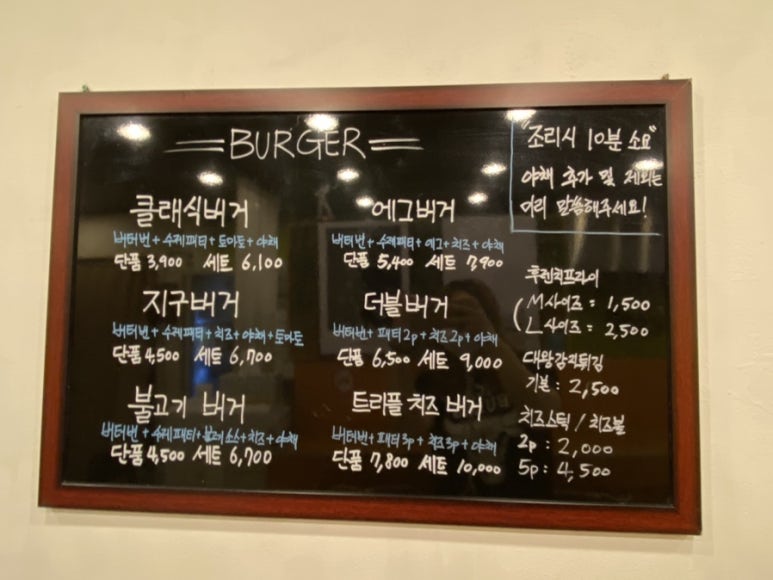 BURGER
클래식버거
버터번+수제패티+토마토+야채
단품 3,900 세트 6,100
지구버거
버터번+수제패티+치즈+야채+토마토
단품 4,500 세트 6,700
불고기 버거
버터번+수제패티+불고기소스+치즈+야채
단품 4,500 세트 6,700
에그버거
버터번+수제패티+에그+치즈+야채
단품 5,400 세트 7,900
더블버거
버터번+패티2p+치즈2p+야채
단품 6,500 세트 9,000
트리플 치즈 버거
버터번+패티3p+치즈3p+야채
단품 7,800 세트 10,000
"조리시 10분 소요"
야채 추가 및 제외는
미리 말씀해주세요!
후렌치프라이
( M사이즈 = 1,500
L사이즈 = 2,500
대왕감자튀김
기본 : 2,500
치즈스틱 / 치즈볼
2p : 2,000
5p : 4,500